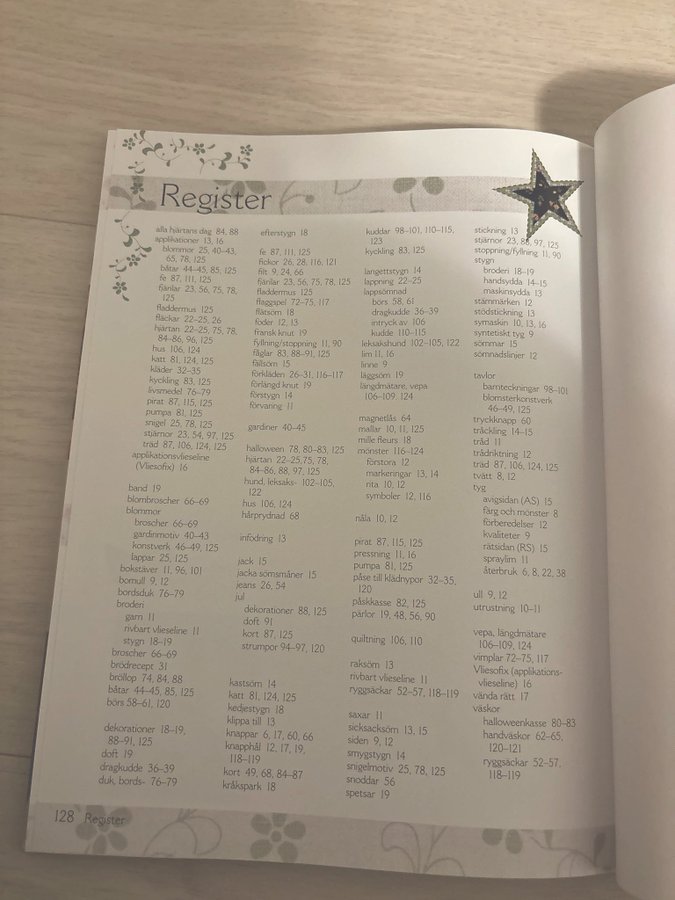 Register
alla hjärtans dag 84, 88
applikationer 13, 16
blommor 25, 40–43,
65, 78, 125
båtar 44–45, 85, 125
fe 87, 111, 125
fjärilar 23, 56, 75, 78,
125
fladdermus 125
fläckar 22–25, 26
hjärtan 22–25, 75, 78,
84–86, 96, 125
hus 106, 124
katt 81, 124, 125
kläder 32–35
kyckling 83, 125
livsmedel 76–79
pirat 87, 115, 125
pumpa 81, 125
snigel 25, 78, 125
stjärnor 23, 54, 97, 125
träd 87, 106, 124, 125
applikationsvlieseline
(Vliesofix) 16
band 19
blombroscher 66–69
blommor
broscher 66–69
gardinmotiv 40–43
konstverk 46–49, 125
lappar 25, 125
bokstäver 11, 96, 101
bomull 9, 12
bordsduk 76–79
broderi
garn 11
rivbart vlieseline 11
stygn 18–19
broscher 66–69
brödrecept 31
bröllop 74, 84, 88
båtar 44–45, 85, 125
börs 58–61, 120
dekorationer 18–19,
88–91, 125
doft 19
dragkudde 36–39
duk, bords- 76–79
efterstygn 18
fe 87, 111, 125
fickor 26, 28, 116, 121
filt 9, 24, 66
fjärilar 23, 56, 75, 78, 125
fladdermus 125
flaggspel 72–75, 117
flätsöm 18
foder 12, 13
fransk knut 19
fyllning/stoppning 11, 90
fåglar 83, 88–91, 125
fällsöm 15
förkläden 26–31, 116–117
förlängd knut 19
förstygn 14
förvaring 11
gardiner 40–45
halloween 78, 80–83, 125
hjärtan 22–25,75, 78,
84–86, 88, 97, 125
hund, leksaks- 102–105,
122
hus 106, 124
hårprydnad 68
infodring 13
jack 15
jacka sömsmåner 15
jeans 26, 54
jul
dekorationer 88, 125
doft 91
kort 87, 125
strumpor 94–97, 120
kastsöm 14
katt 81, 124, 125
kedjestygn 18
klippa till 13
knappar 6, 17, 60, 66
knapphål 12, 17, 19,
118–119
kort 49, 68, 84–87
kråkspark 18
kuddar 98–101, 110–115,
123
kyckling 83, 125
langettstygn 14
lappning 22–25
lappsömnad
börs 58, 61
dragkudde 36–39
intryck av 106
kudde 110–115
leksakshund 102–105, 122
lim 11, 16
linne 9
läggsöm 19
längdmätare, vepa
106–109, 124
magnetlås 64
mallar 10, 11, 125
mille fleurs 18
mönster 116–124
förstora 12
markeringar 13, 14
rita 10, 12
symboler 12, 116
nåla 10, 12
pirat 87, 115, 125
pressning 11, 16
pumpa 81, 125
påse till klädnypor 32–35,
120
påskkasse 82, 125
pärlor 19, 48, 56, 90
quiltning 106, 110
raksöm 13
rivbart vlieseline 11
ryggsäckar 52–57, 118–119
saxar 11
sicksacksöm 13, 15
siden 9, 12
smygstygn 14
snigelmotiv 25, 78, 125
snoddar 56
spetsar 19
stickning 13
stjärnor 23, 88, 97, 125
stoppning/fyllning 11, 90
stygn
broderi 18–19
handsydda 14–15
maskinsydda 13
städmärken 12
stödstickning 13
symaskin 10, 13, 16
syntetiskt tyg 9
sömmar 15
sömnadslinjer 12
tavlor
barnteckningar 98–101
blomsterkonstverk
46–49, 125
tryckknapp 60
tråckling 14–15
tråd 11
trådriktning 12
träd 87, 106, 124, 125
tvätt 8, 12
tyg
avigsidan (AS) 15
färg och mönster 8
förberedelser 12
kvaliteter 9
rätsidan (RS) 15
spraylim 11
återbruk 6, 8, 22, 38
ull 9, 12
utrustning 10–11
vepa, längdmätare
106–109, 124
vimplar 72–75, 117
Vliesofix (applikations-
vlieseline) 16
vända rätt 17
väskor
halloweenkasse 80–83
handväskor 62–65,
120–121
ryggsäckar 52–57,
118–119
128 Register